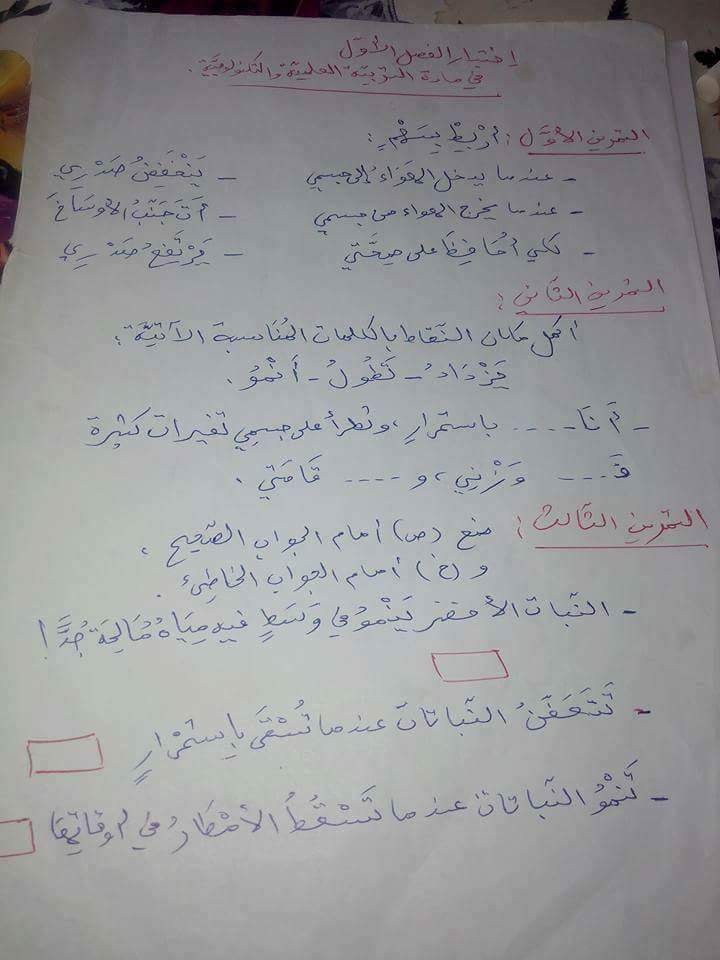 إختبار الفصل الأول
في مادة التربية العلمية والتكنولوجية.
التمرين الأوّل: أرْبِطْ بِسَهْمٍ:
- عندما يدخل الهَوَاءُ إلى جسمي - يَنْخَفِضُ صَدْرِي
- عندما يخرج الهواء من جسمي - أتَجَنّبُ الأوسَاخَ
- لكي أُحَافِظَ على صِحَّتي - يَرْتَفِعُ صَدْرِي
التمرين الثاني:
أكمل مكان النّقاط بالكلمات المُناسبة الآتيّة:
يَزْدَادُ - تَطُولُ - أَنْمُو.
- أنَا .... باستمرارٍ، وتطرأ على جسمِي تغيرات كثيرة
فَـ... وَزْنِي، و .... قَامَتي.
التمرين الثّالث: ضع (ص) أمام الجواب الصّحيح،
و (خ) أمام الجواب الخاطِئ.
- النّبات الأخضر يَنْمُو في وَسَطٍ فيه مِيَاهٌ مُالِحَة جِدًّا!
- تَتَعَفّنُ النّباتات عندما تُسْقَى بِاِستِمْرارٍ
- تَنْمُو النّباتات عندما تَسْقُطُ الأمْطَارُ في أوقاتِها